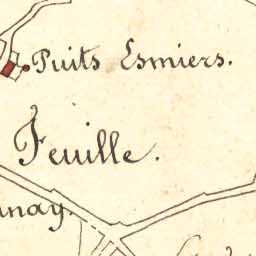 Puits Esmiers.
Feuille.
nay.